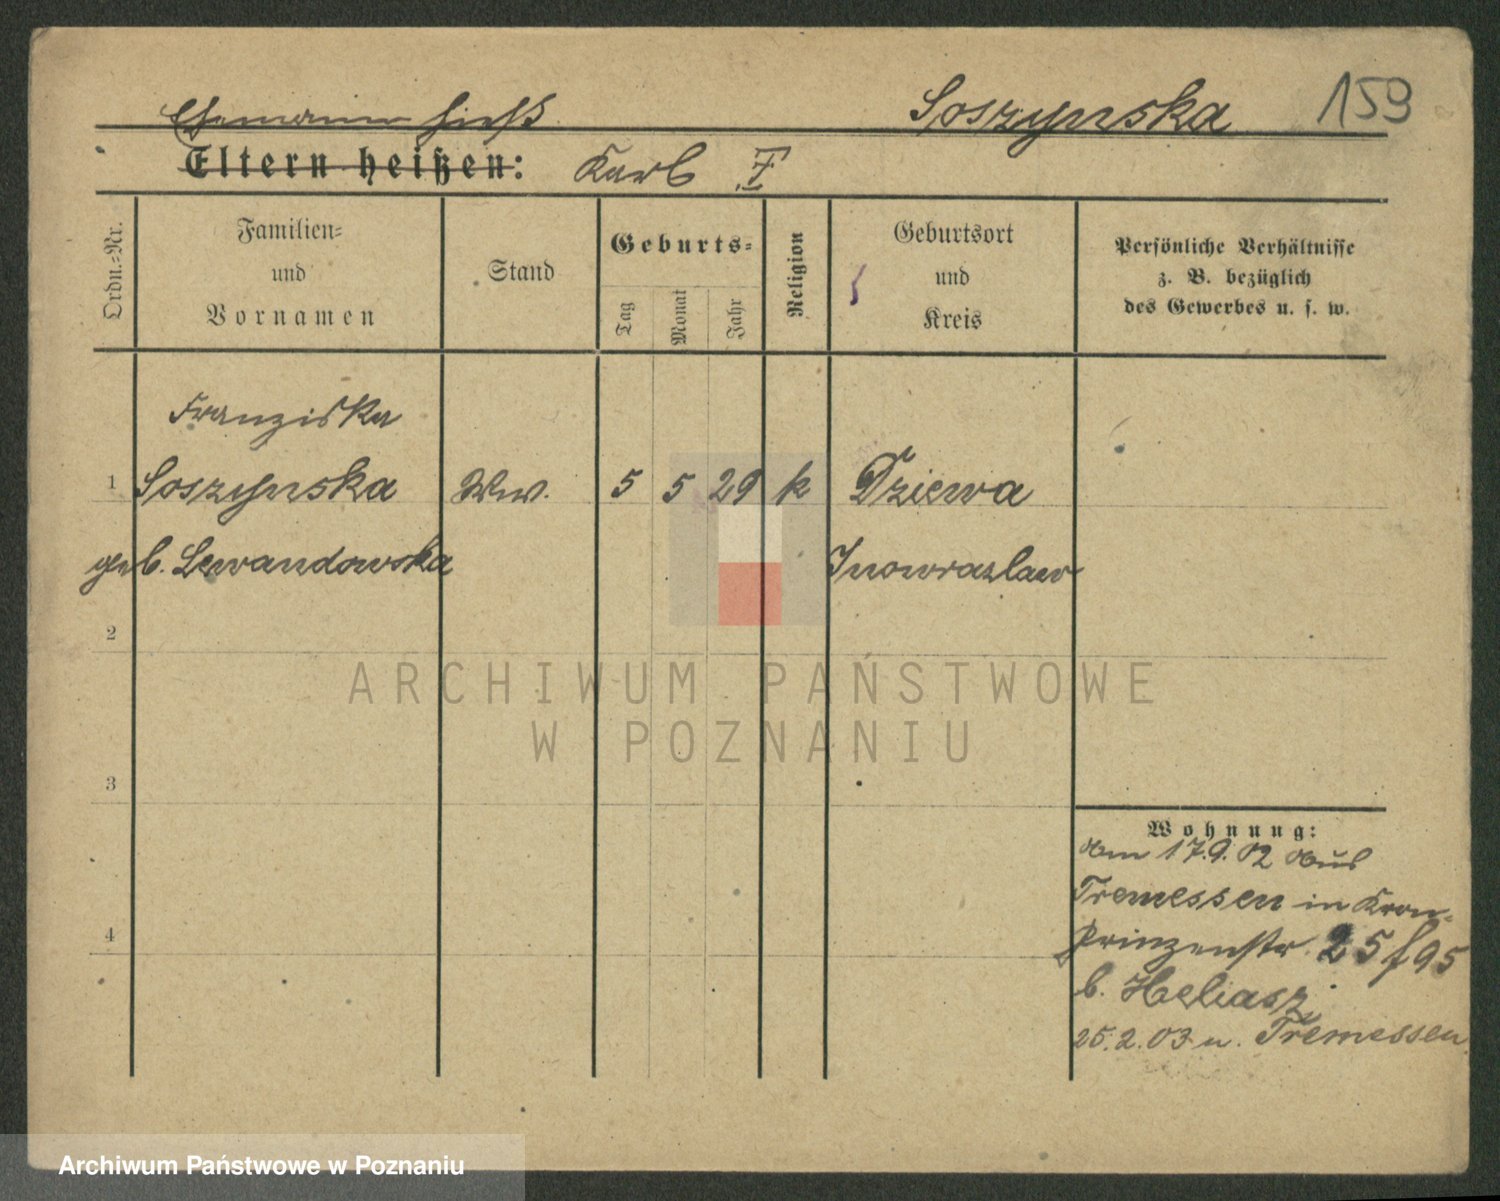 Ehemann hieß Soszynska 159
Eltern heißen: Karl
Ordn.-Nr. Familien- und Vornamen Stand Geburts- Tag Monat Jahr Religion Geburtsort und Kreis Persönliche Verhältnisse z. B. bezüglich des Gewerbes u. s. w.
Franziska
1 Soszynska Ww. 5 5 29 k Dziewa
geb. Lewandowska Inowrazlaw
2
ARCHIWUM PAŃSTWOWE
W POZNANIU
3
Wohnung:
Am 17.9.02 aus
Tremessen in Kron-
4
prinzenstr. 25 f 95
b. Heliasz
25.2.03 n. Tremessen
Archiwum Państwowe w Poznaniu